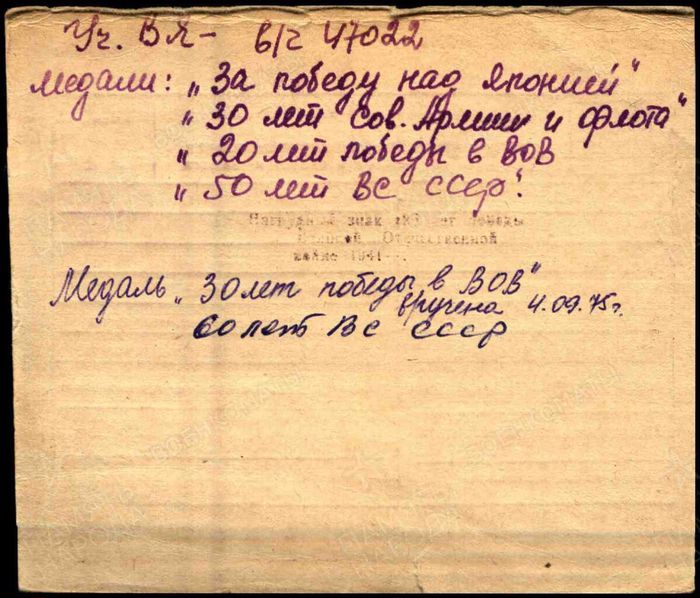 Уч. ВЯ- в/ч 47022
медали: „За победу над Японией"
„30 лет сов. Армии и флота"
„20 лет победы в ВОВ
„50 лет ВС СССР".
Нагрудный знак лет Победы
Отечественной
войне 1941
Медаль „30 лет победы в ВОВ"
вручена 4.09.75г.
60 лет ВС СССР